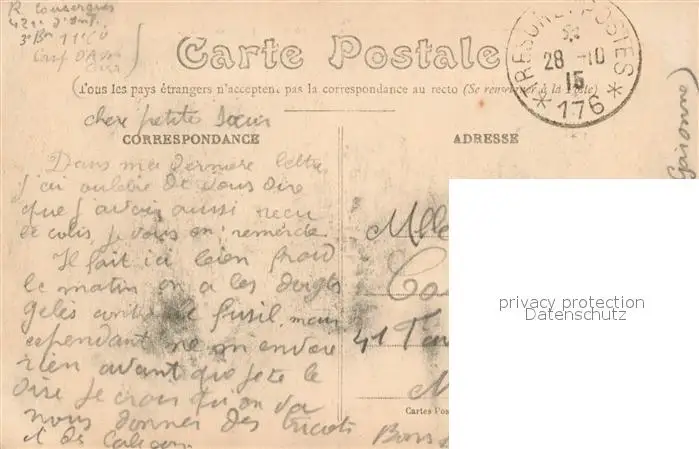 R. Couserques
421e d'Inf.
3e Bn 11e Cie
Carte Postale
(Tous les pays étrangers n'acceptent pas la correspondance au recto (Se renseigner à la Poste)
TRESOR ET POSTES
28 -10
15
* 176 *
Garonne)
cheres petites Sœurs
CORRESPONDANCE
ADRESSE
Dans ma derniere lettre
j'ai oublié de vous dire
que j'avais aussi recu
le colis, je vous en remercie
Il fait ici bien froid
le matin on a les doigts
gelés contre le fusil, mais
cependant ne m'envoie
rien avant que je te le
dise je crois qu'on va
nous donner des tricots
et des caleçons
Mlle
41
M
Cartes Pos
Bons
privacy protection
Datenschutz